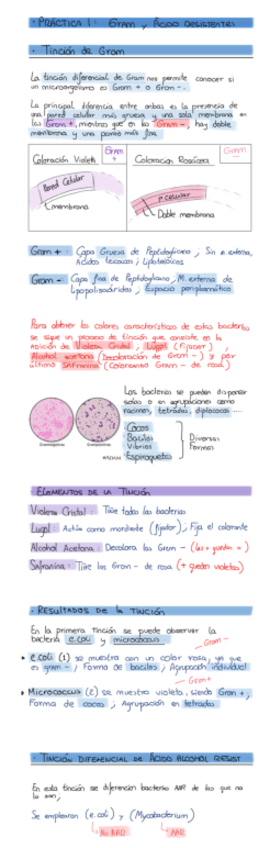 · PRÁCTICA 1: GRAM y ÁCIDO RESISTENTES
· Tinción de Gram
La tinción diferencial de Gram nos permite conocer si
un microorganismo es Gram + o Gram -.
La principal diferencia entre ambas es la presencia de
una pared celular más gruesa y una sola membrana en
las Gram +, mientras que en las Gram -, hay doble
membrana y una pared más fina
Gram +
Coloración Violeta
Pared Celular
1 membrana
Gram -
Coloración Rosácea
P. celular
Doble membrana
Gram + : Capa Gruesa de Peptidoglicano ; Sin m. externa,
Ácidos Teicoicos ; Lipoteicoicos
Gram - : Capa fina de Peptidoglicano, M. externa de
Lipopolisacáridos ; Espacio periplasmático
Para obtener los colores característicos de estas bacterias
se sigue un proceso de tinción que consiste en la
adición de Violeta Cristal, Lugol (Fijador),
Alcohol acetona (Decoloración de Gram -) y por
último SAFranina (Coloreamos Gram - de rosa)
Las bacterias se pueden disponer
solas o en agrupaciones como
racimos, tetradas, diplococos ....
· Cocos
· Bacilos
· Vibrios
· Espiroquetas
Diversas
Formas
ELEMENTOS DE LA TINCIÓN
Violeta Cristal : Tiñe todas las bacterias
Lugol : Actúa como mordiente (fijador) ; Fija el colorante
Alcohol Acetona : Decolora las Gram -
Safranina : Tiñe las Gram - de rosa (+ quedan violetas)
· RESULTADOS DE LA TINCIÓN
En la primera tinción se puede observar la
bacteria e.coli y micrococcus
Gram -
· e.coli (1) se muestra con un color rosa, ya que
es gram - ; Forma de bacilos ; Agrupación individual
Gram +
· Micrococcus (2) se muestra violeta, siendo Gram +,
Forma de cocos ; Agrupación en tetradas
· TINCIÓN DIFERENCIAL DE ÁCIDO ALCOHOL RESIST
En esta tinción se diferencian bacterias AAR de las que no
lo son,
Se emplearon (e.coli) y (Mycobacterium)
No AAR
AAR